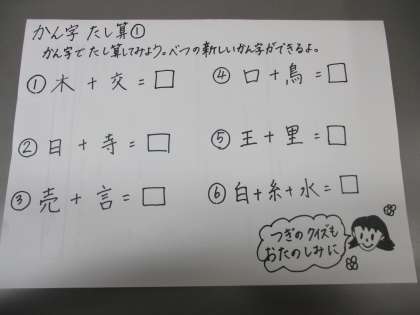 かん字 たし算①
かん字で たし算してみよう。べつの新しいかん字ができるよ。
① 木 + 交 = □
② 日 + 寺 = □
③ 売 + 言 = □
④ 口 + 鳥 = □
⑤ 王 + 里 = □
⑥ 白 + 糸 + 水 = □
つぎの クイズも
おたのしみに